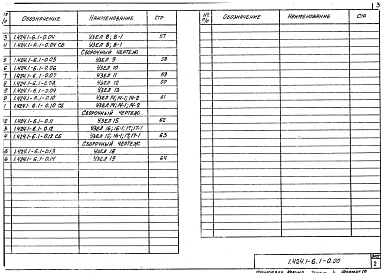 3
№ п/п ОБОЗНАЧЕНИЕ НАИМЕНОВАНИЕ СТР
3 1.424.1-6.1-0.04 УЗЕЛ 8; 8-1 57
4 1.424.1-6.1-0.04 СБ УЗЕЛ 8; 8-1
СБОРОЧНЫЙ ЧЕРТЕЖ
5 1.424.1-6.1-0.05 УЗЕЛ 9 58
6 1.424.1-6.1-0.06 УЗЕЛ 10
7 1.424.1-6.1-0.07 УЗЕЛ 11 59
8 1.424.1-6.1-0.08 УЗЕЛ 12 60
9 1.424.1-6.1-0.09 УЗЕЛ 13
0 1.424.1-6.1-0.10 УЗЕЛ 14; 14-1; 14-2 61
1 1.424.1-6.1-0.10 СБ УЗЕЛ 14; 14-1; 14-2
СБОРОЧНЫЙ ЧЕРТЕЖ
12 1.424.1-6.1-0.11 УЗЕЛ 15 62
3 1.424.1-6.1-0.12 УЗЕЛ 16; 16-1; 17; 17-1
4 1.424.1-6.1-0.12 СБ УЗЕЛ 16; 16-1; 17; 17-1 63
СБОРОЧНЫЙ ЧЕРТЕЖ
15 1.424.1-6.1-0.13 УЗЕЛ 18
16 1.424.1-6.1-0.14 УЗЕЛ 19 64
№ п/п ОБОЗНАЧЕНИЕ НАИМЕНОВАНИЕ СТР
1.424.1-6.1-0.00
ЛИСТ
2